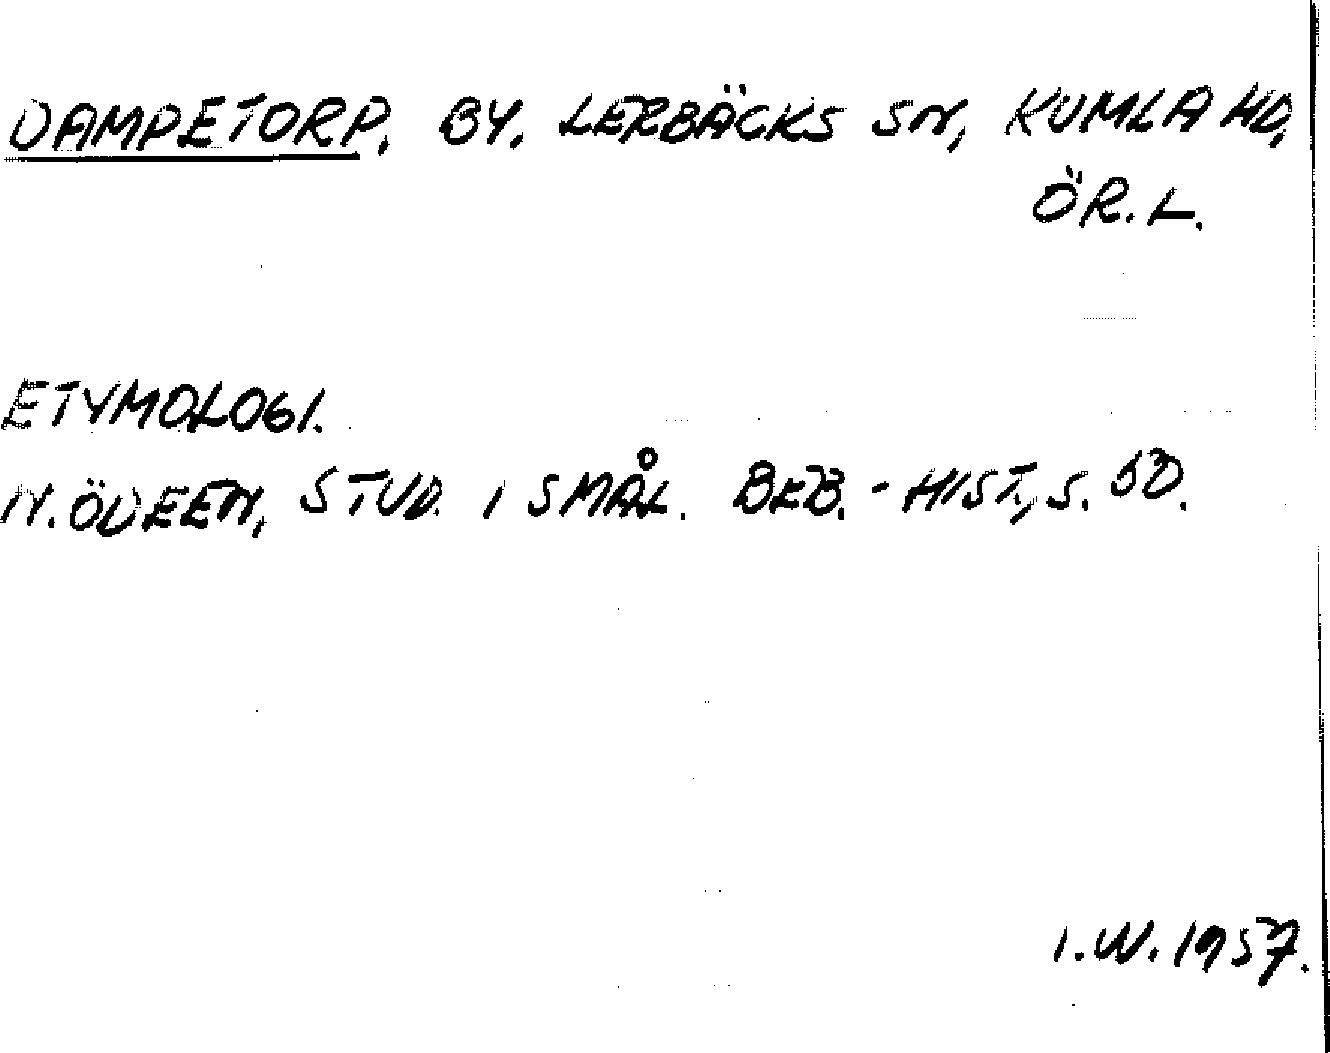 DAMPETORP, BY. LERBÄCKS SN, KUMLA HD,
ÖR. L.
ETYMOLOGI.
N. ÖDEEN, STUD. I SMÅL. BEB.-HIST., S. 50.
I. W. 1957.